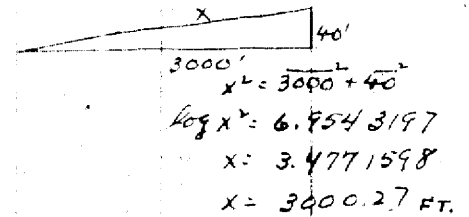 x
40'
3000'
x² = 3000² + 40²
log x² = 6.9543197
x = 3.4771598
x = 3000.27 FT.